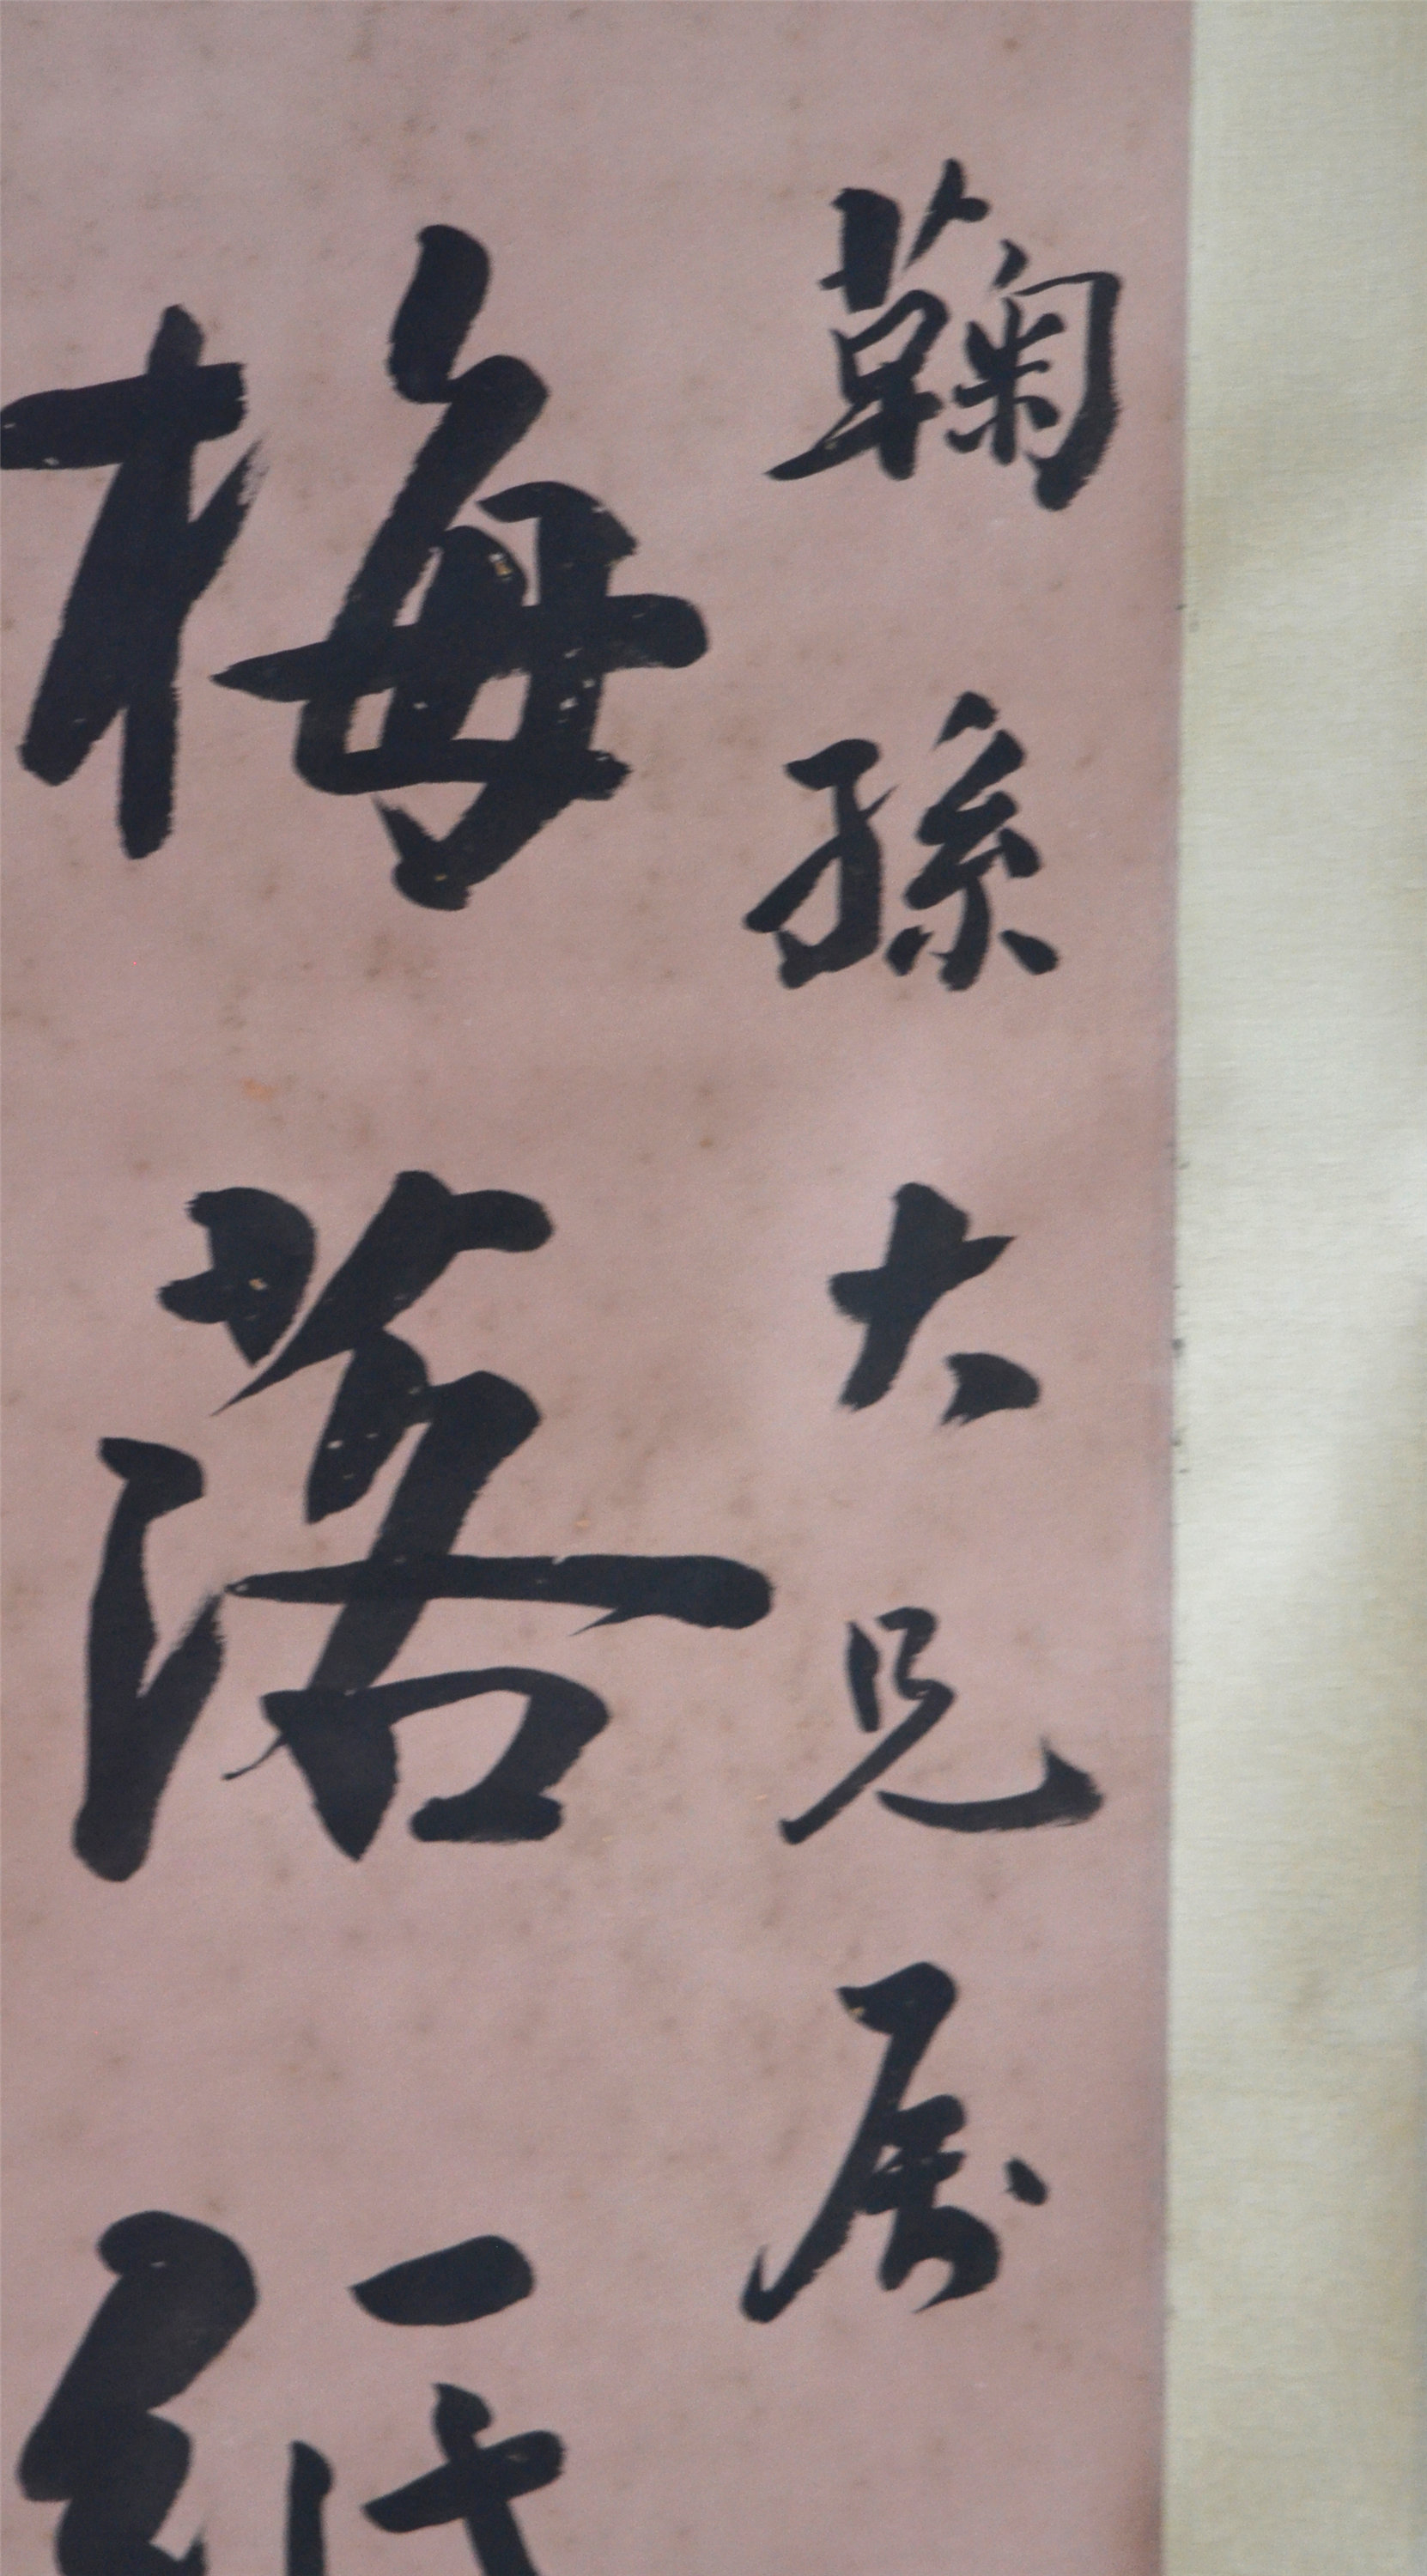 鞠孫大兄属
梅落